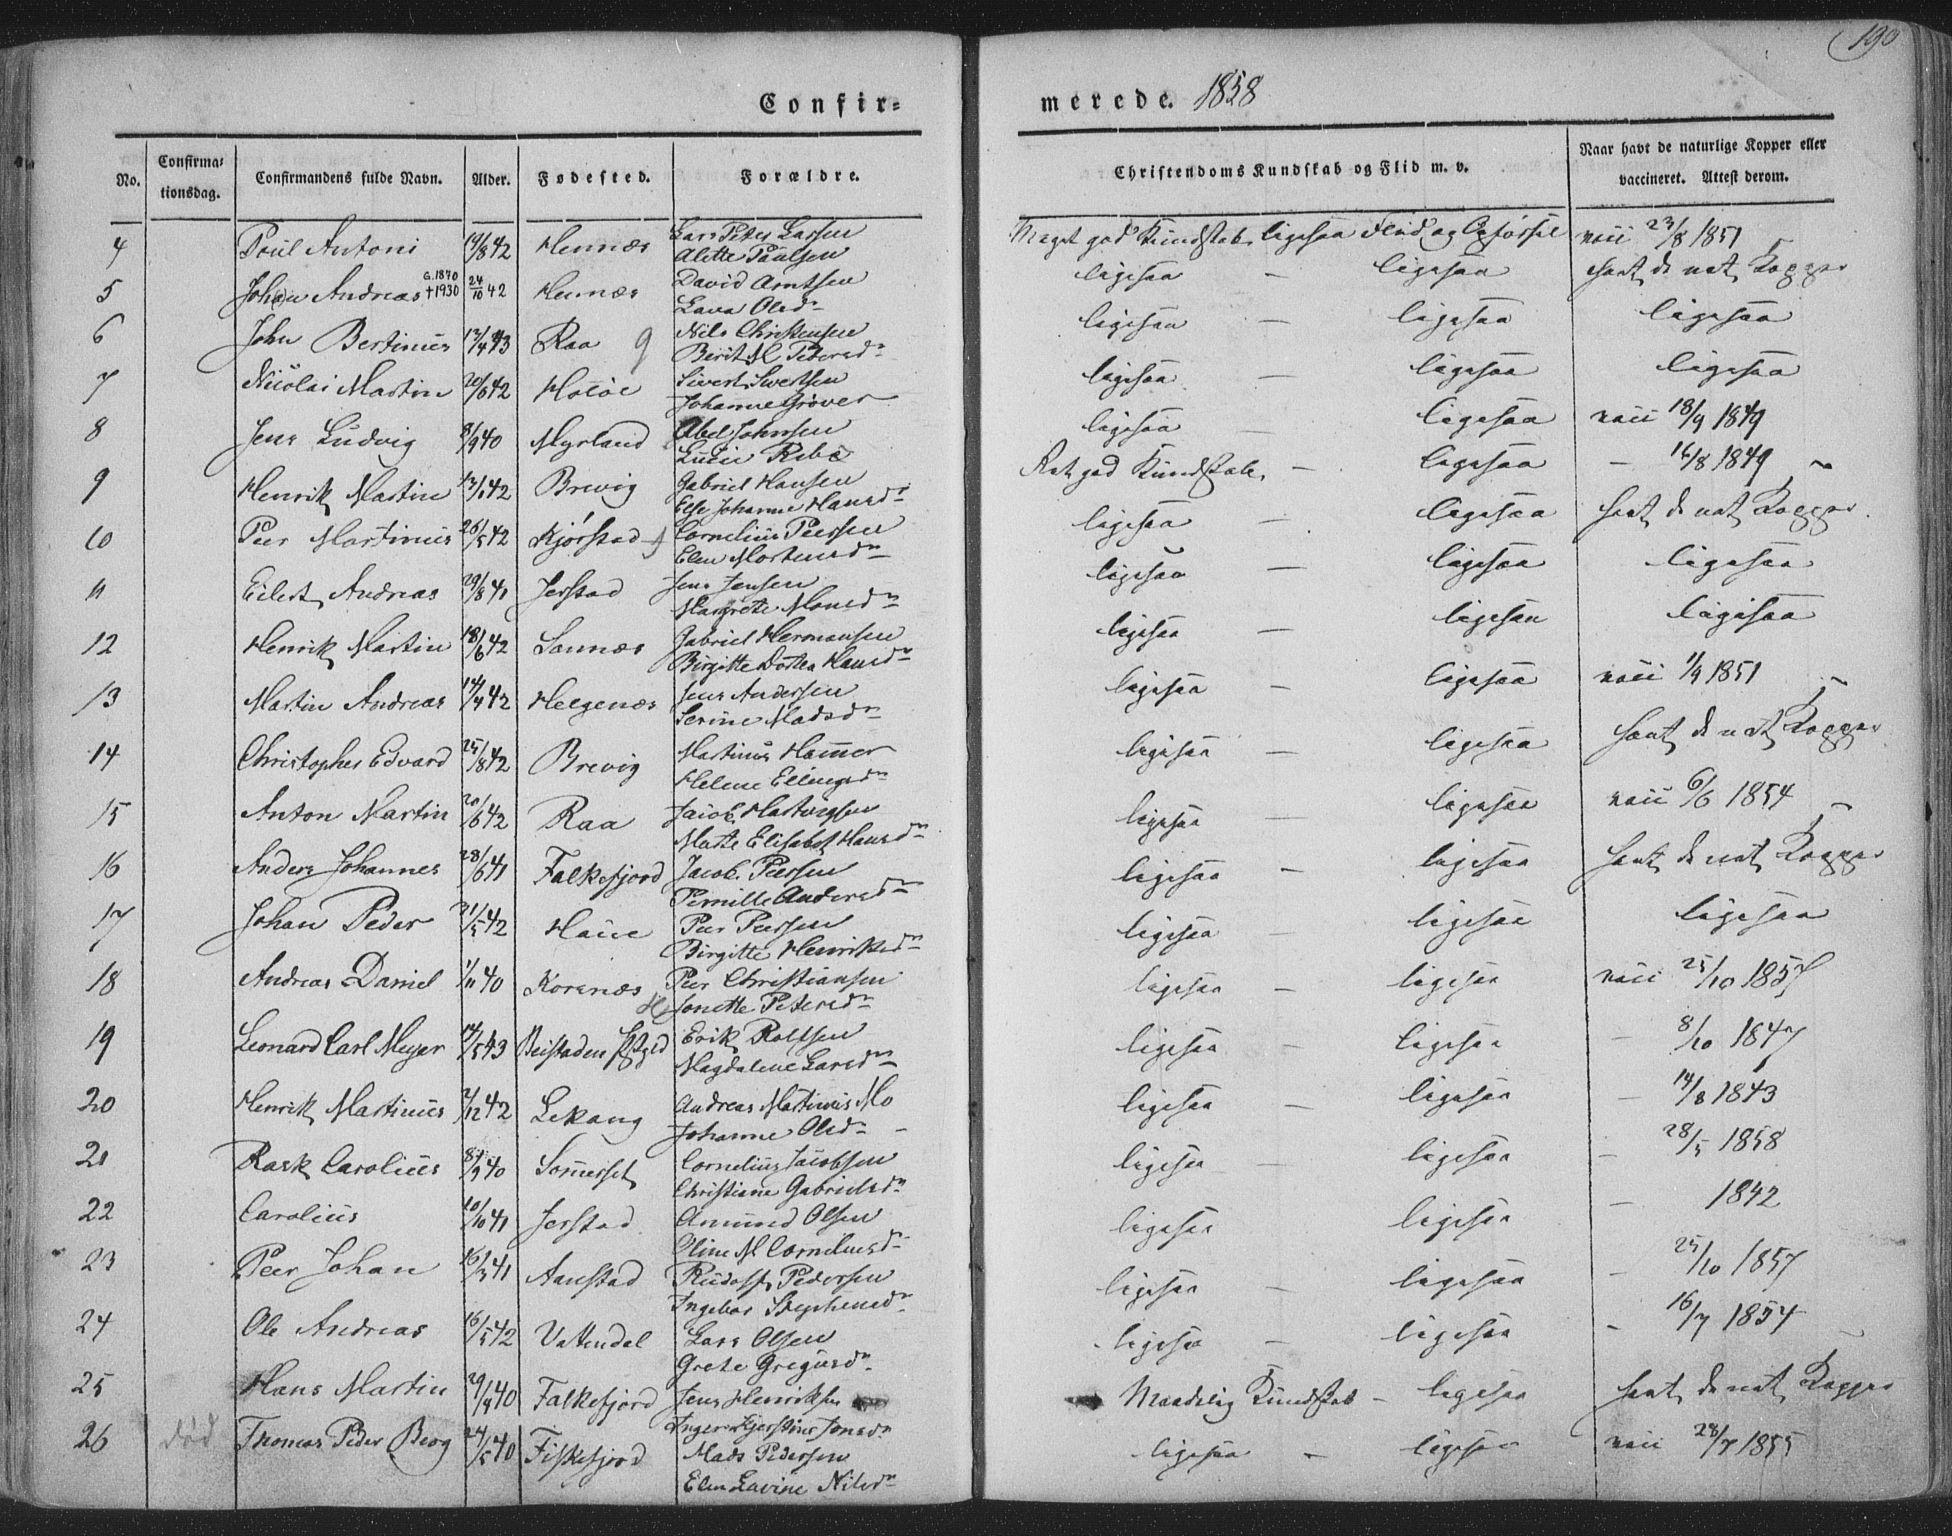 190
Confir=
merede. 1858
No.
Confirma=
tionsdag.
Confirmandens fulde Navn.
Alder.
Fødested.
Forældre.
Christendoms Kundskab og Flid m. v.
Naar havt de naturlige Kopper eller
vaccineret. Attest derom.
4 Poul Antoni 19/8 42 Hennæs Lars Peter Larsen
Alette Paulsen
Meget god Kundskab ligesaa Flid og Opførsel vacc 23/8 1851
5 Johan Andreas G. 1870 +1930 24/10 42 Hennæs David Arntsen
Lava Olsdr
ligesaa — ligesaa havt de nat. Kopper
6 John Bertinus 13/4 43 Raa 9 Nils Christensen
Berit M Pedersdr
ligesaa — ligesaa ligesaa
7 Nicolai Martin 20/6 42 Holøe Sivert Sivertsen
Johanne Grøver
ligesaa — ligesaa ligesaa
8 Jens Ludvig 8/9 40 Myrland Abel Johnsen
Lucie Rebe
ligesaa — ligesaa vacc 18/9 1849
9 Henrik Martin 13/1 42 Brevig Gabriel Hansen
Else Johanne Hansdr
Ret god Kundskab — ligesaa — 16/8 1849
10 Peer Martinus 26/5 42 Kjørstad Cornelius Peersen
Elen Mortensdr
ligesaa — ligesaa havt de nat. Kopper
11 Eilert Andreas 29/8 41 Jerstad Jens Jensen
Margrete Monsdr
ligesaa — ligesaa ligesaa
12 Henrik Martin 18/6 42 Sannæs Gabriel Hermansen
Birgitte Dorthea Hansdr
ligesaa — ligesaa ligesaa
13 Martin Andreas 14/4 42 Helgenæs Jens Andersen
Serine Madsdr
ligesaa — ligesaa vacc 1/9 1851
14 Christopher Edvard 25/8 42 Brevig Martinus Hammer
Helene Ellingsdr
ligesaa — ligesaa havt de nat Kopper
15 Anton Martin 20/6 42 Raa Jacob Hartvigsen
Marte Elisabet Hansdr
ligesaa — ligesaa vacc 6/6 1854
16 Anders Johannes 28/6 41 Falkefjord Jacob Peersen
Pernille Andersdr
ligesaa — ligesaa havt de nat. Kopper
17 Johan Peder 31/5 42 Haue Peer Peersen
Birgitte Henriksdr
ligesaa — ligesaa ligesaa
18 Andreas Daniel 1/11 40 Korsnæs Peer Christiansen
Jonette Petersdr
ligesaa — ligesaa vacc 25/10 1857
19 Leonard Carl Meyer 14/5 43 Beistaden Prgld Erik Roltsen
Magdalene Larsdr
ligesaa — ligesaa — 8/10 1847
20 Henrik Martinus 2/12 42 Lekang Andreas Martinus Mo
Johanne Olsdr
ligesaa — ligesaa — 14/8 1843
21 Rask Carolius 8/9 40 Sommerset Cornelius Jacobsen
Christiane Gabrielsdr
ligesaa — ligesaa — 28/5 1858
22 Carolius 10/10 41 Jerstad Amund Olsen
Oline M Corneliusdr
ligesaa ligesaa — 1842
23 Peer Johan 16/3 41 Aanstad Rudolf Pedersen
Ingebor Stephensdr
ligesaa — ligesaa — 25/10 1857
24 Ole Andreas 16/5 42 Vattendal Lars Olsen
Grete Gregusdr
ligesaa — ligesaa — 16/7 1854
25 Hans Martin 29/9 40 Falkefjord Jens Henriksen
Inger Kjerstine Jonsdr
Maadelig Kundskab — ligesaa havt de nat. Kopper
26 død Thomas Peder Berg 24/5 40 Fiskefjord Mads Pedersen
Elen Lavine Nilsdr
ligesaa — ligesaa vacc 28/7 1855